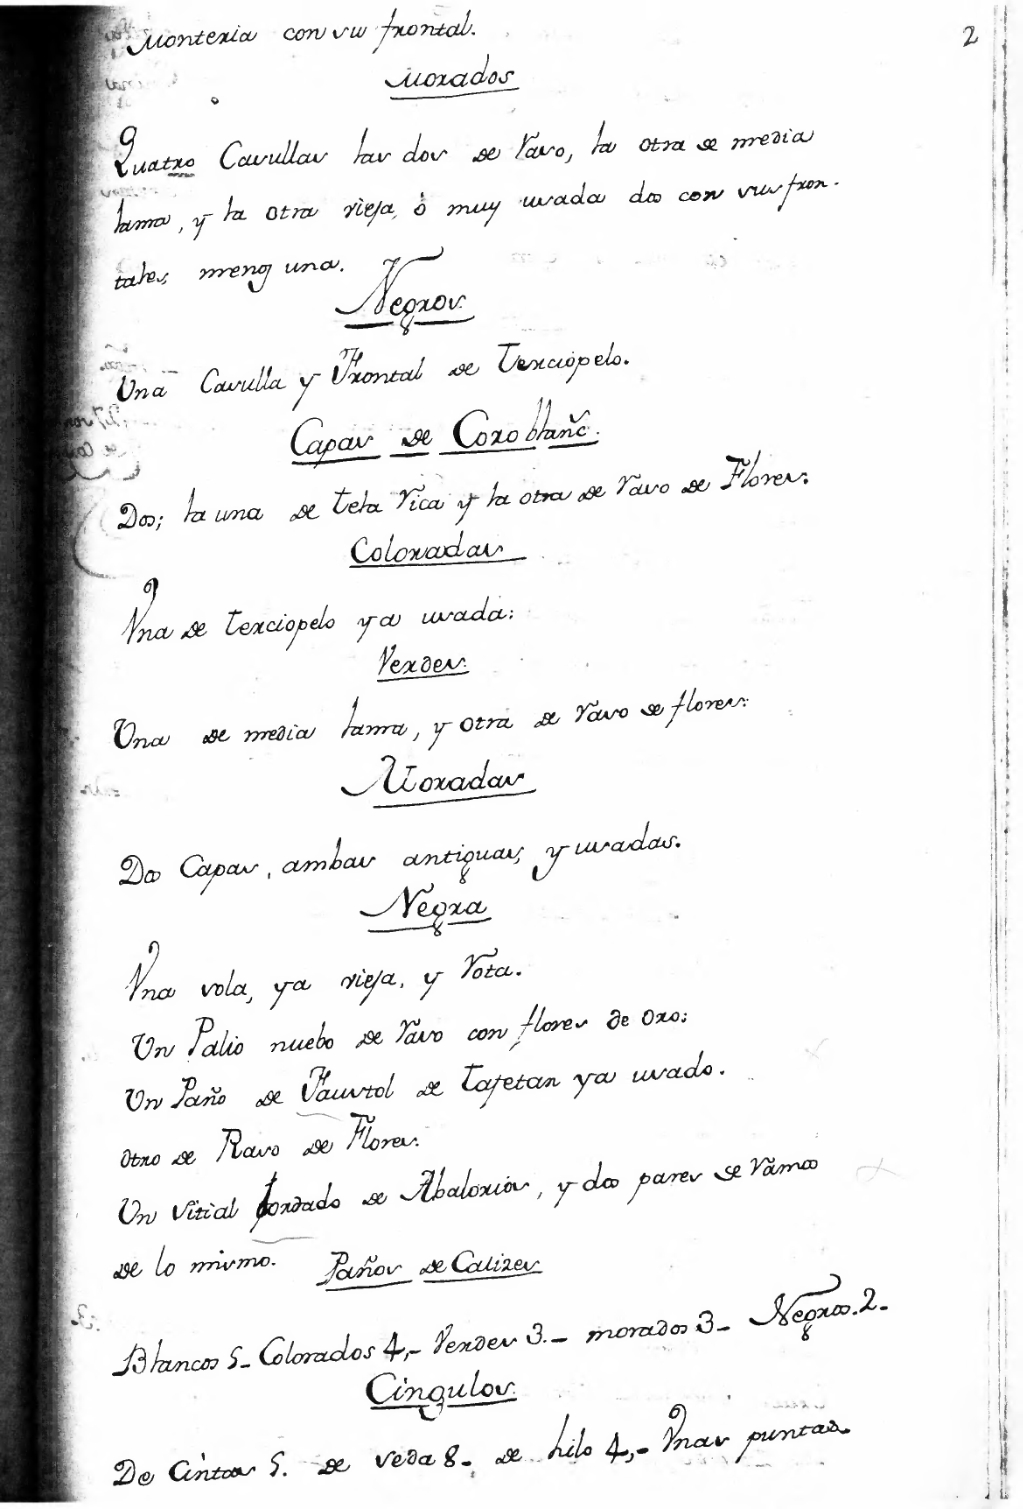 2
Monteria con su frontal.
Morados
Quatro Casullas las dos de raso, la otra de media
lama, y la otra vieja, ò muy usada dos con sus fron-
tales, menos una.
Negros.
Una Casulla y Frontal de Terciopelo.
Capas de Coro blanc.
Dos; la una de tela rica y la otra de raso de Flores:
Coloradas
Una de terciopelo ya usada:
Verdes.
Una de media lama, y otra de raso de flores:
Moradas
Dos Capas, ambas antiguas, y usadas.
Negra
Una sola, ya vieja, y rota.
Un Palio nuebo de raso con flores de oro:
Un Paño de Faustol de tafetan ya usado.
Otro de Raso de Flores.
Un Vitial bordado de Abalorios, y dos pares de ramos
de lo mismo.
Paños de Calizes
Blancos 5- Colorados 4,- Verdes 3.- morados 3- Negros.2-
Cingulos.
De Cintas 5. de seda 8- de hilo 4,- Unas puntas